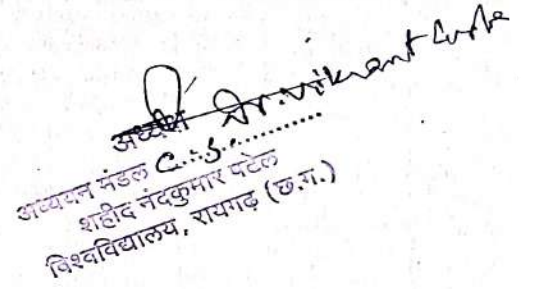 Dr. Vikrant Gupta
अध्यक्ष
अध्ययन मंडल C.S.............
शहीद नंदकुमार पटेल
विश्वविद्यालय, रायगढ़ (छ.ग.)